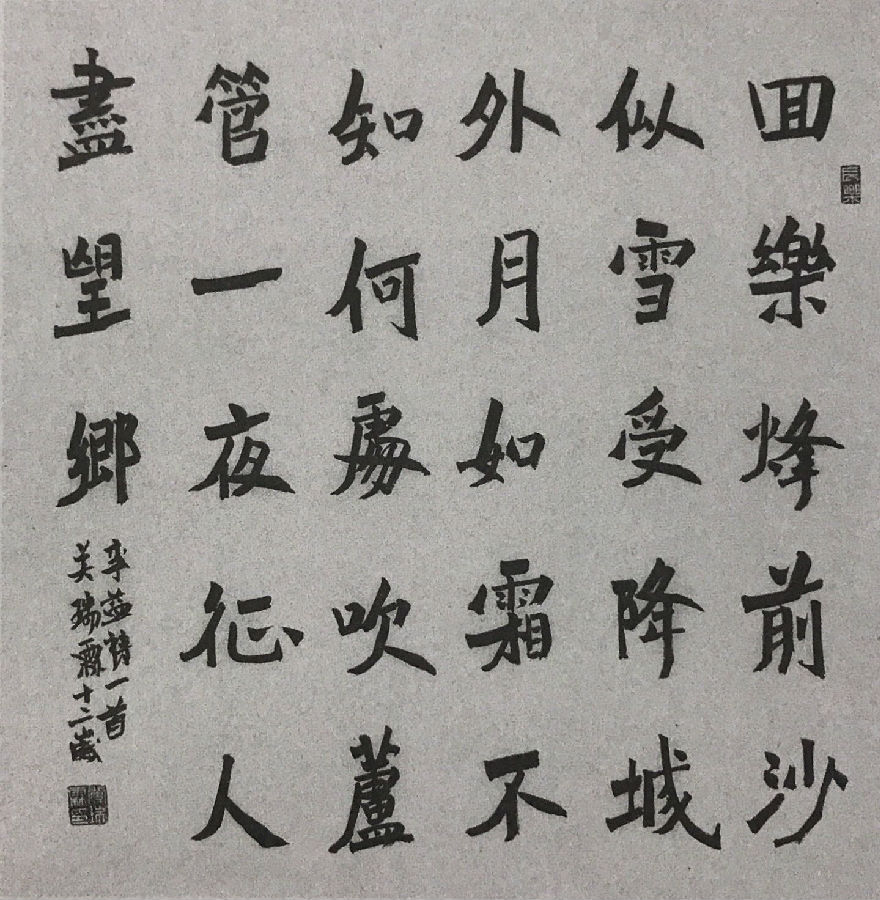 回樂烽前沙
似雪受降城
外月如霜不
知何處吹蘆
管一夜征人
盡望鄉
李益詩一首
美瑞霖十二歲